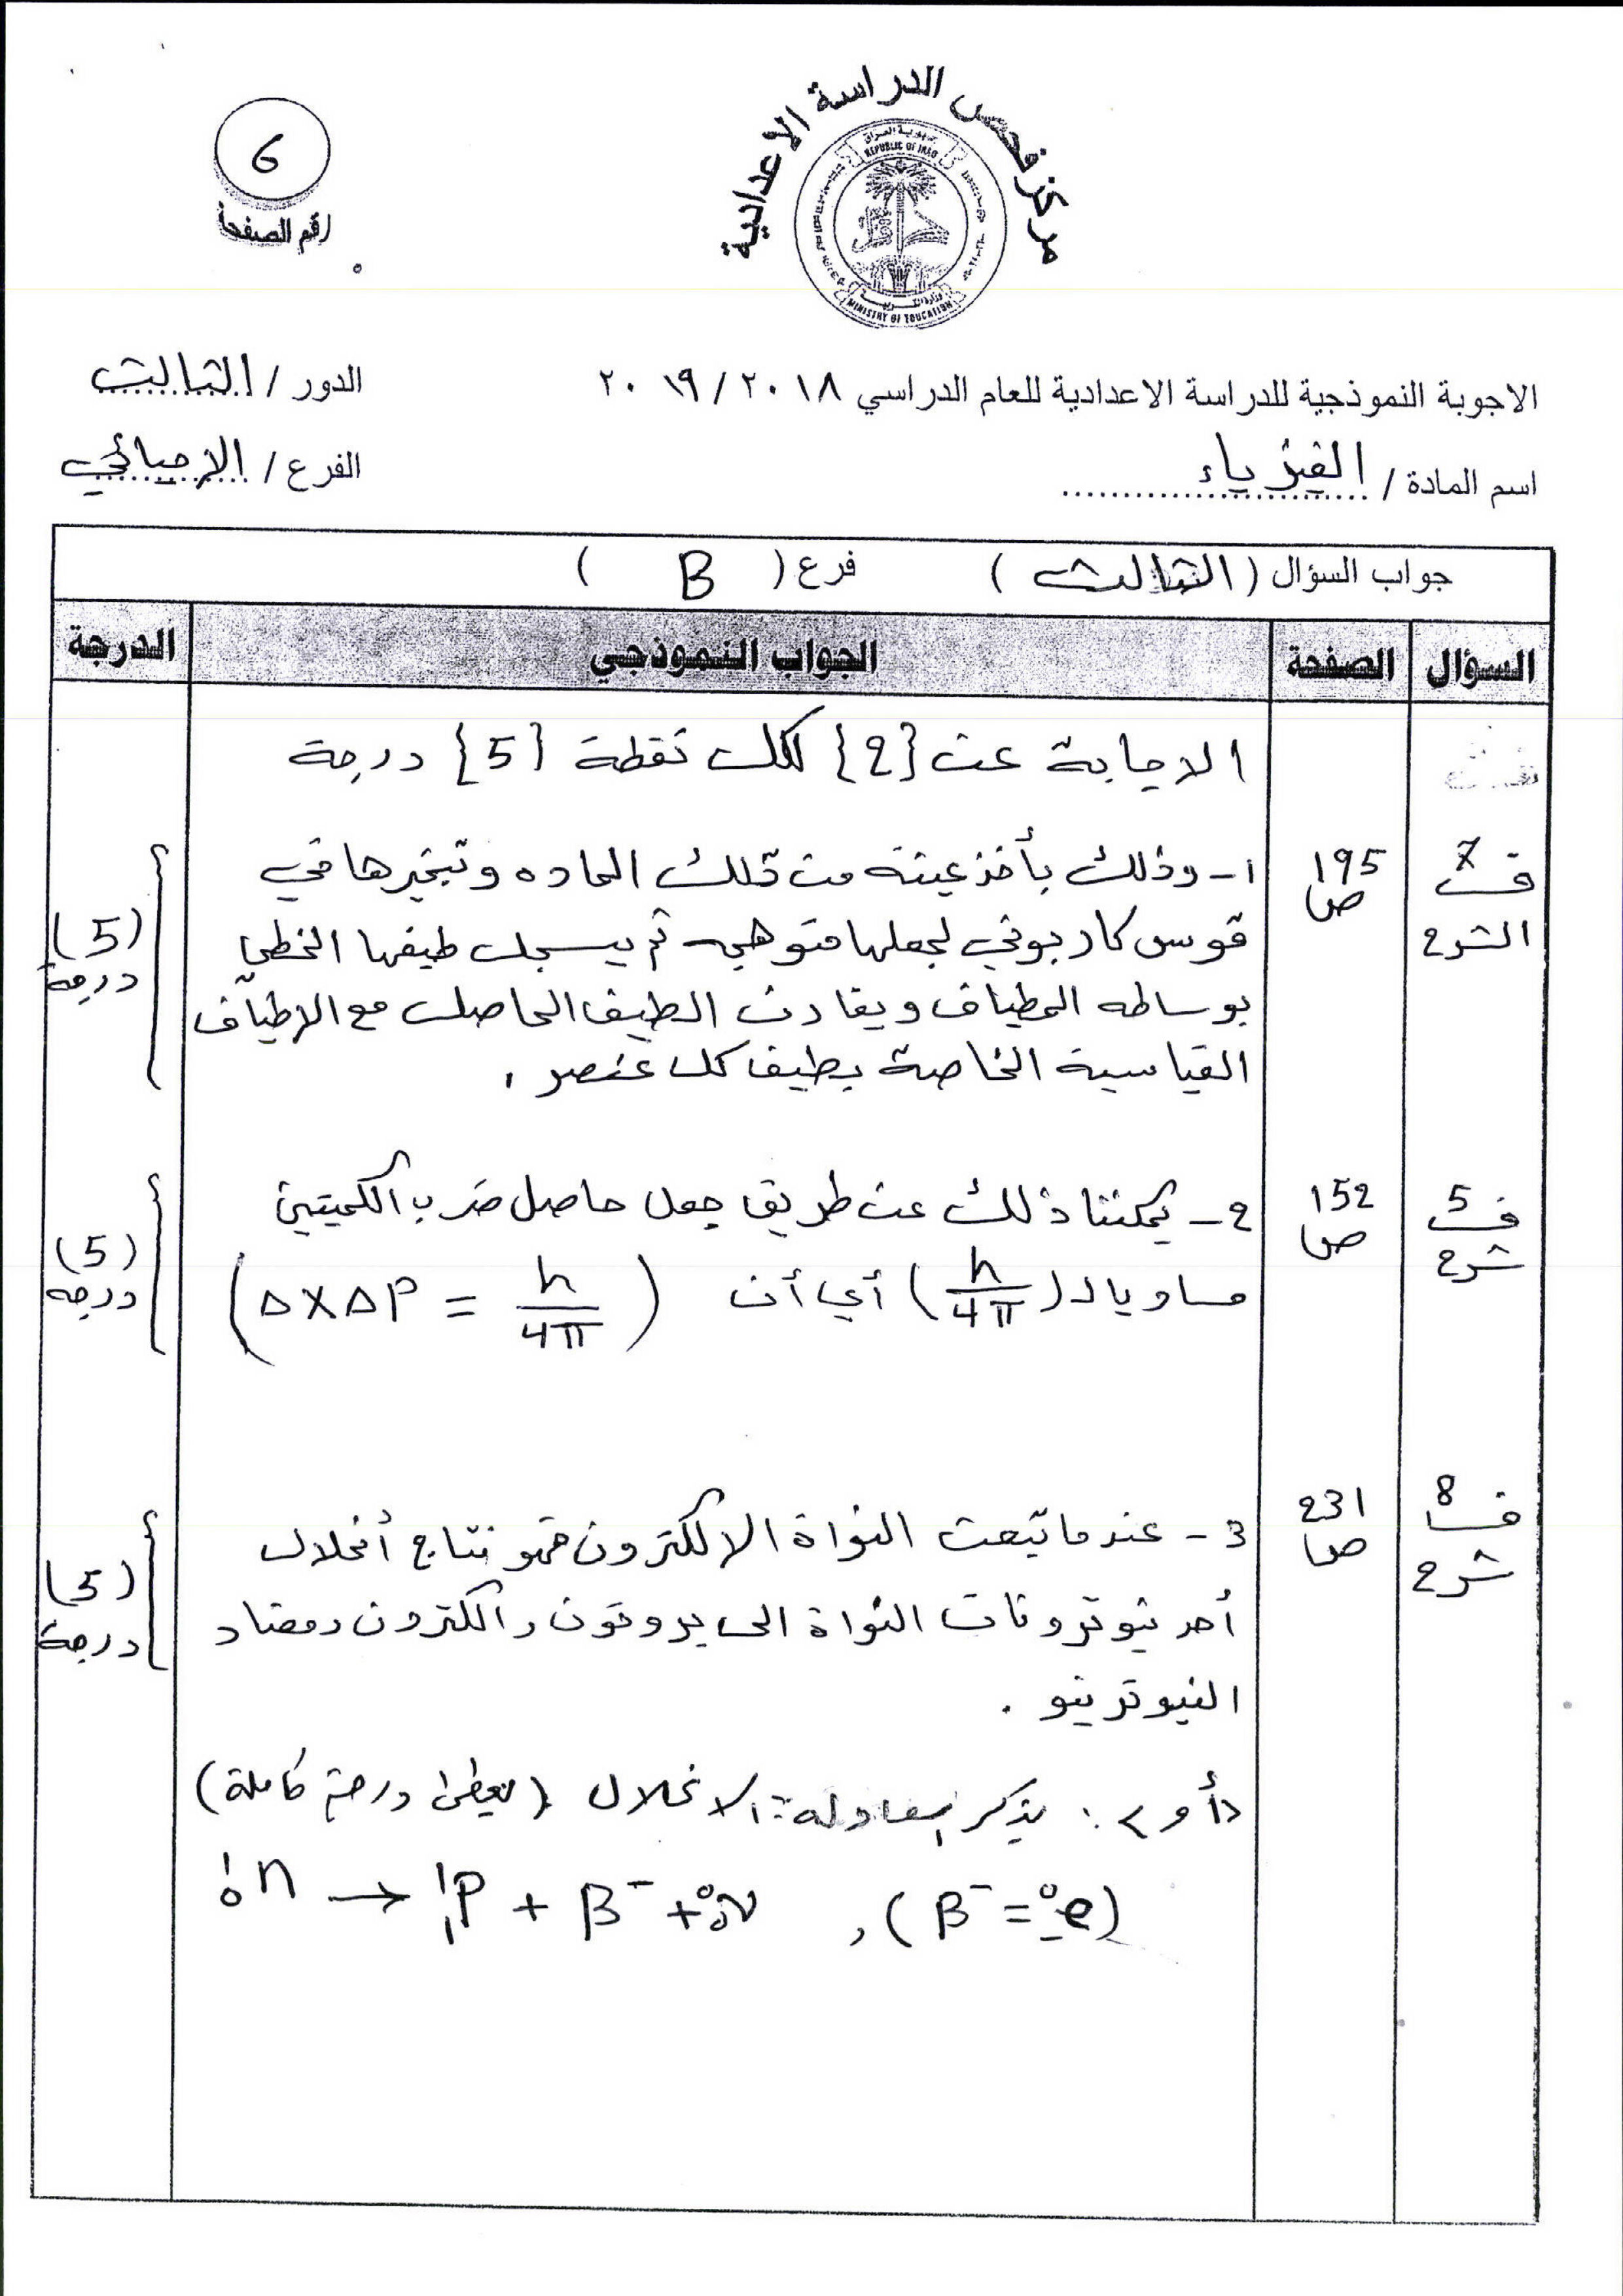 مركز فحص الدراسة الاعدادية
جمهورية العراق
REPUBLIC OF IRAQ
وزارة التربية
MINISTRY OF EDUCATION
6
رقم الصفحة
الاجوبة النموذجية للدراسة الاعدادية للعام الدراسي ٢٠١٨ / ٢٠١٩
الدور / الثالث
اسم المادة / الفيزياء
الفرع / الإحيائي
جواب السؤال ( الثالث ) فرع ( B )
السؤال الصفحة الجواب النموذجي الدرجة
الاجابة عن {2} لكل نقطة {5} درجة
ف7 الشرح
195 ص
1- وذلك بأخذ عينة من تلك الماده وتبخيرها في
قوس كاربوني لجعلها متوهجه ثم يسجل طيفها الخطي
بوساطه المطياف ويقارن الطيف الحاصل مع الاطياف
القياسية الخاصة بطيف كل عنصر .
(5) درجة
ف5 شرح
152 ص
2- يمكننا ذلك عن طريق جعل حاصل ضرب الكميتين
مساويا لـ (h/4π) أي أن (ΔxΔp = h/4π)
(5) درجه
ف8 شرح
231 ص
3- عندما تبعث النواة الالكترون فهو نتاج أنحلال
أحد نيوترونات النواة الى بروتون والكترون ومضاد
النيوترينو .
(5) درجة
«أو» : يذكر معادلة الانحلال (يعطى درجة كاملة)
¹₀n → ¹₁P + β⁻ + ⁰₀ν , (β⁻ = ⁰₋₁e)